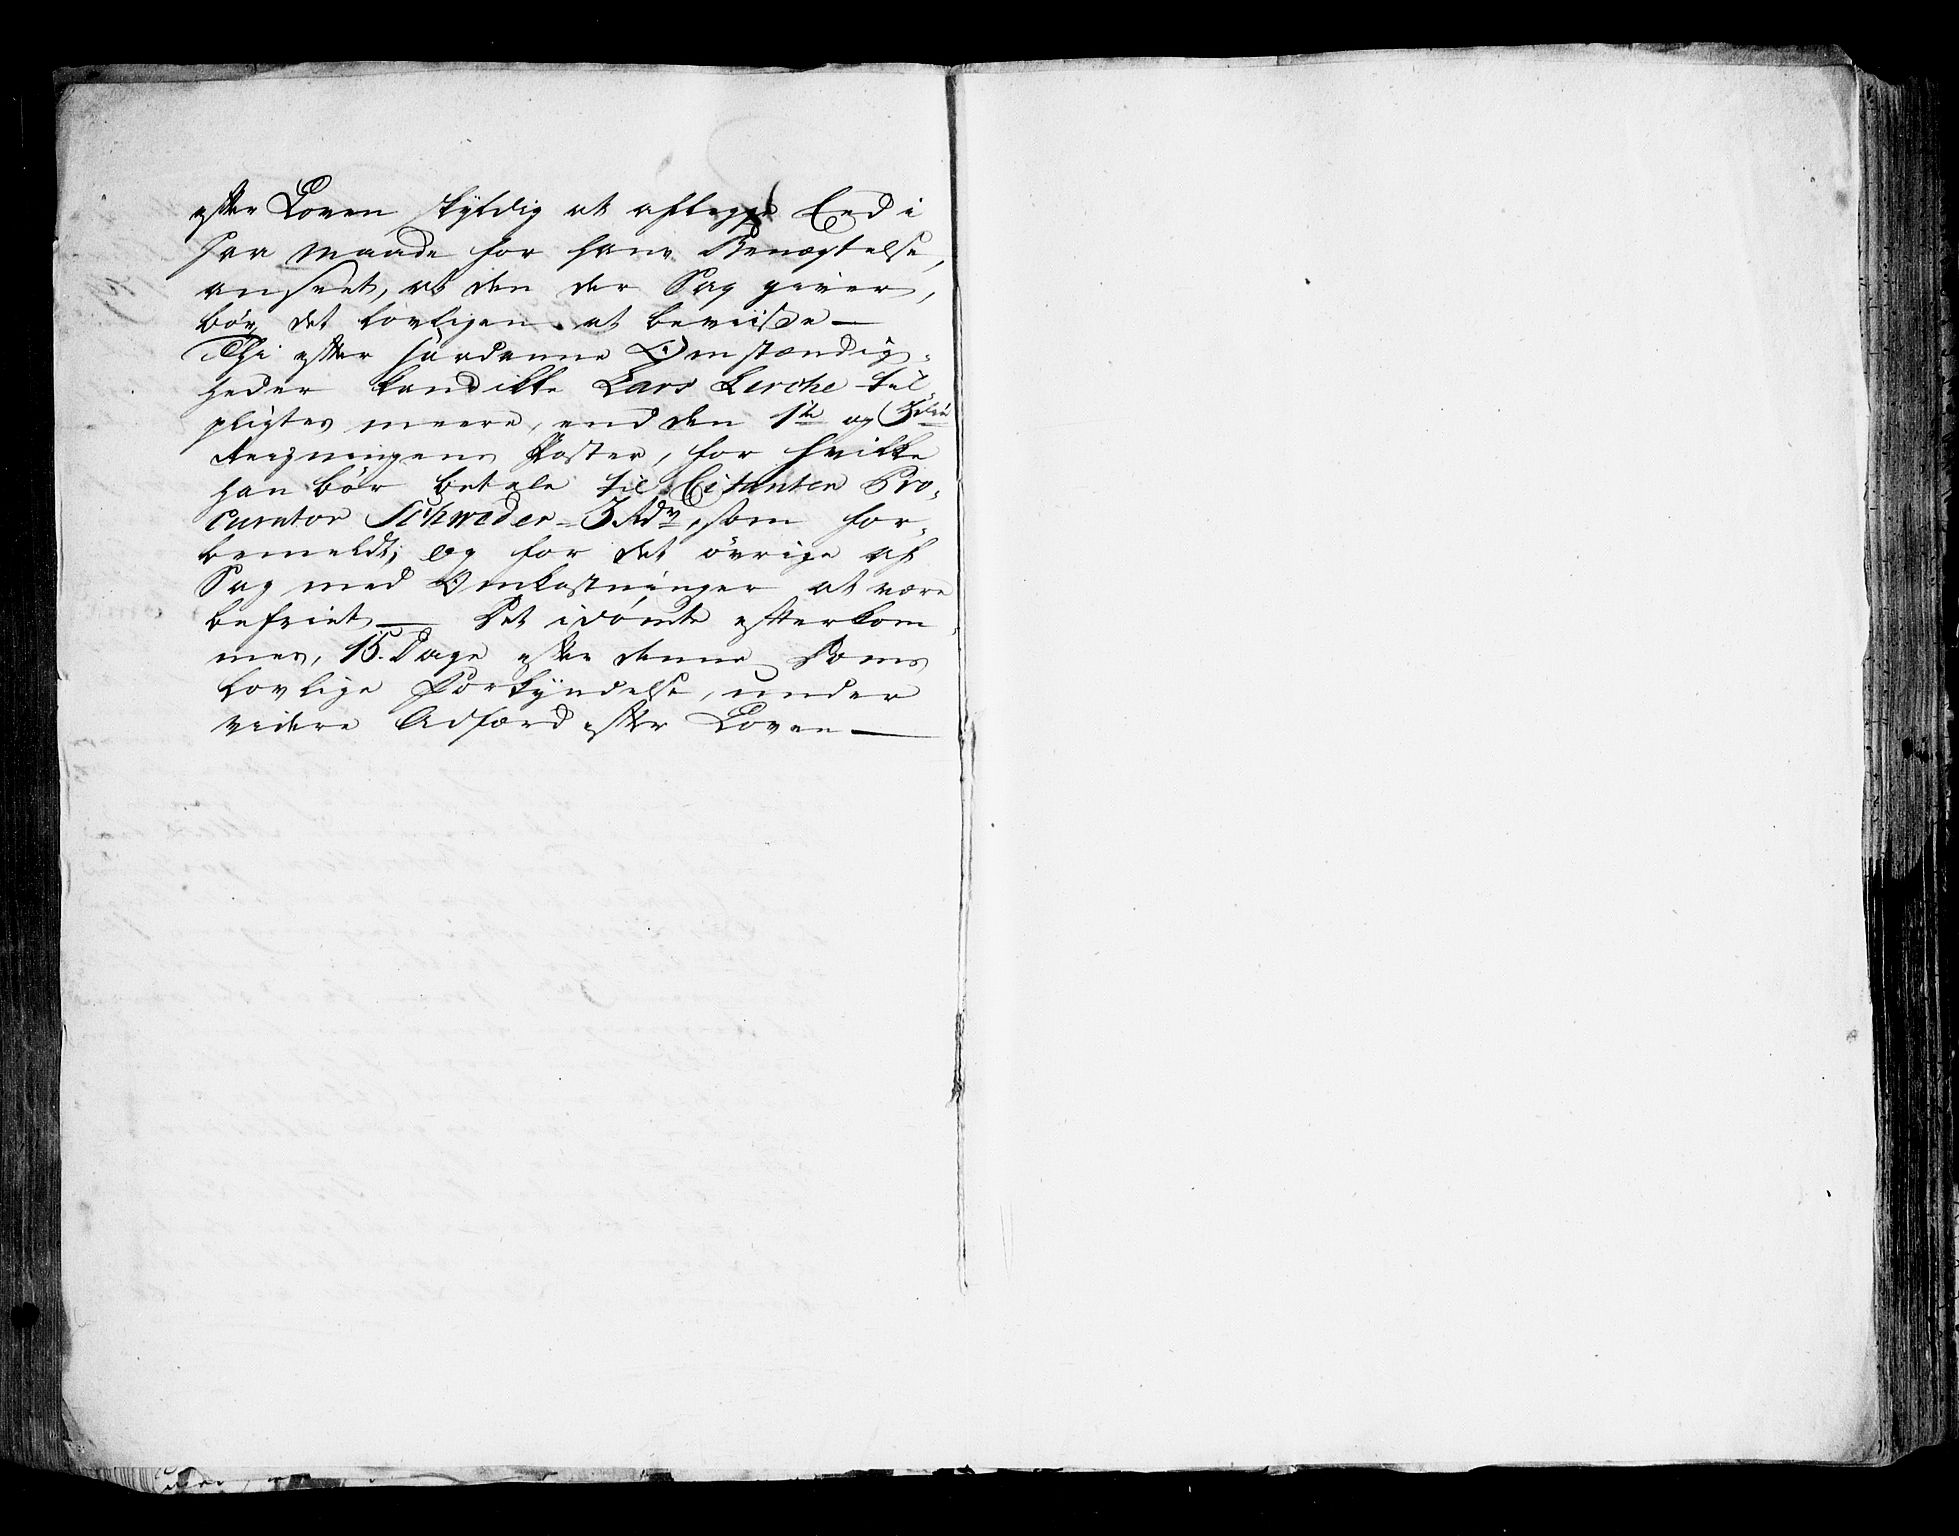 efter Loven skyldig at aflegge Eed i
saa Maade for hans Benægtelse,
anseet, at den der Sag giver,
bør det lovligen at beviise —
Thi efter saadanne Omstændig-
heder kand ikke Lars Lerche til
pligtes meere, end den 1te og 3die
Regningens Poster, for hvilke
han bør betale til Citanten Pro-
curator Schweder 3 Rdr, som for-
bemeldt; og for det øvrige af
Sag med Omkostninger at være
befriet — Det idømte efterkom-
mes, 15. Dage efter denne Doms
lovlige Forkyndelse, under
videre Adfærd efter Loven —